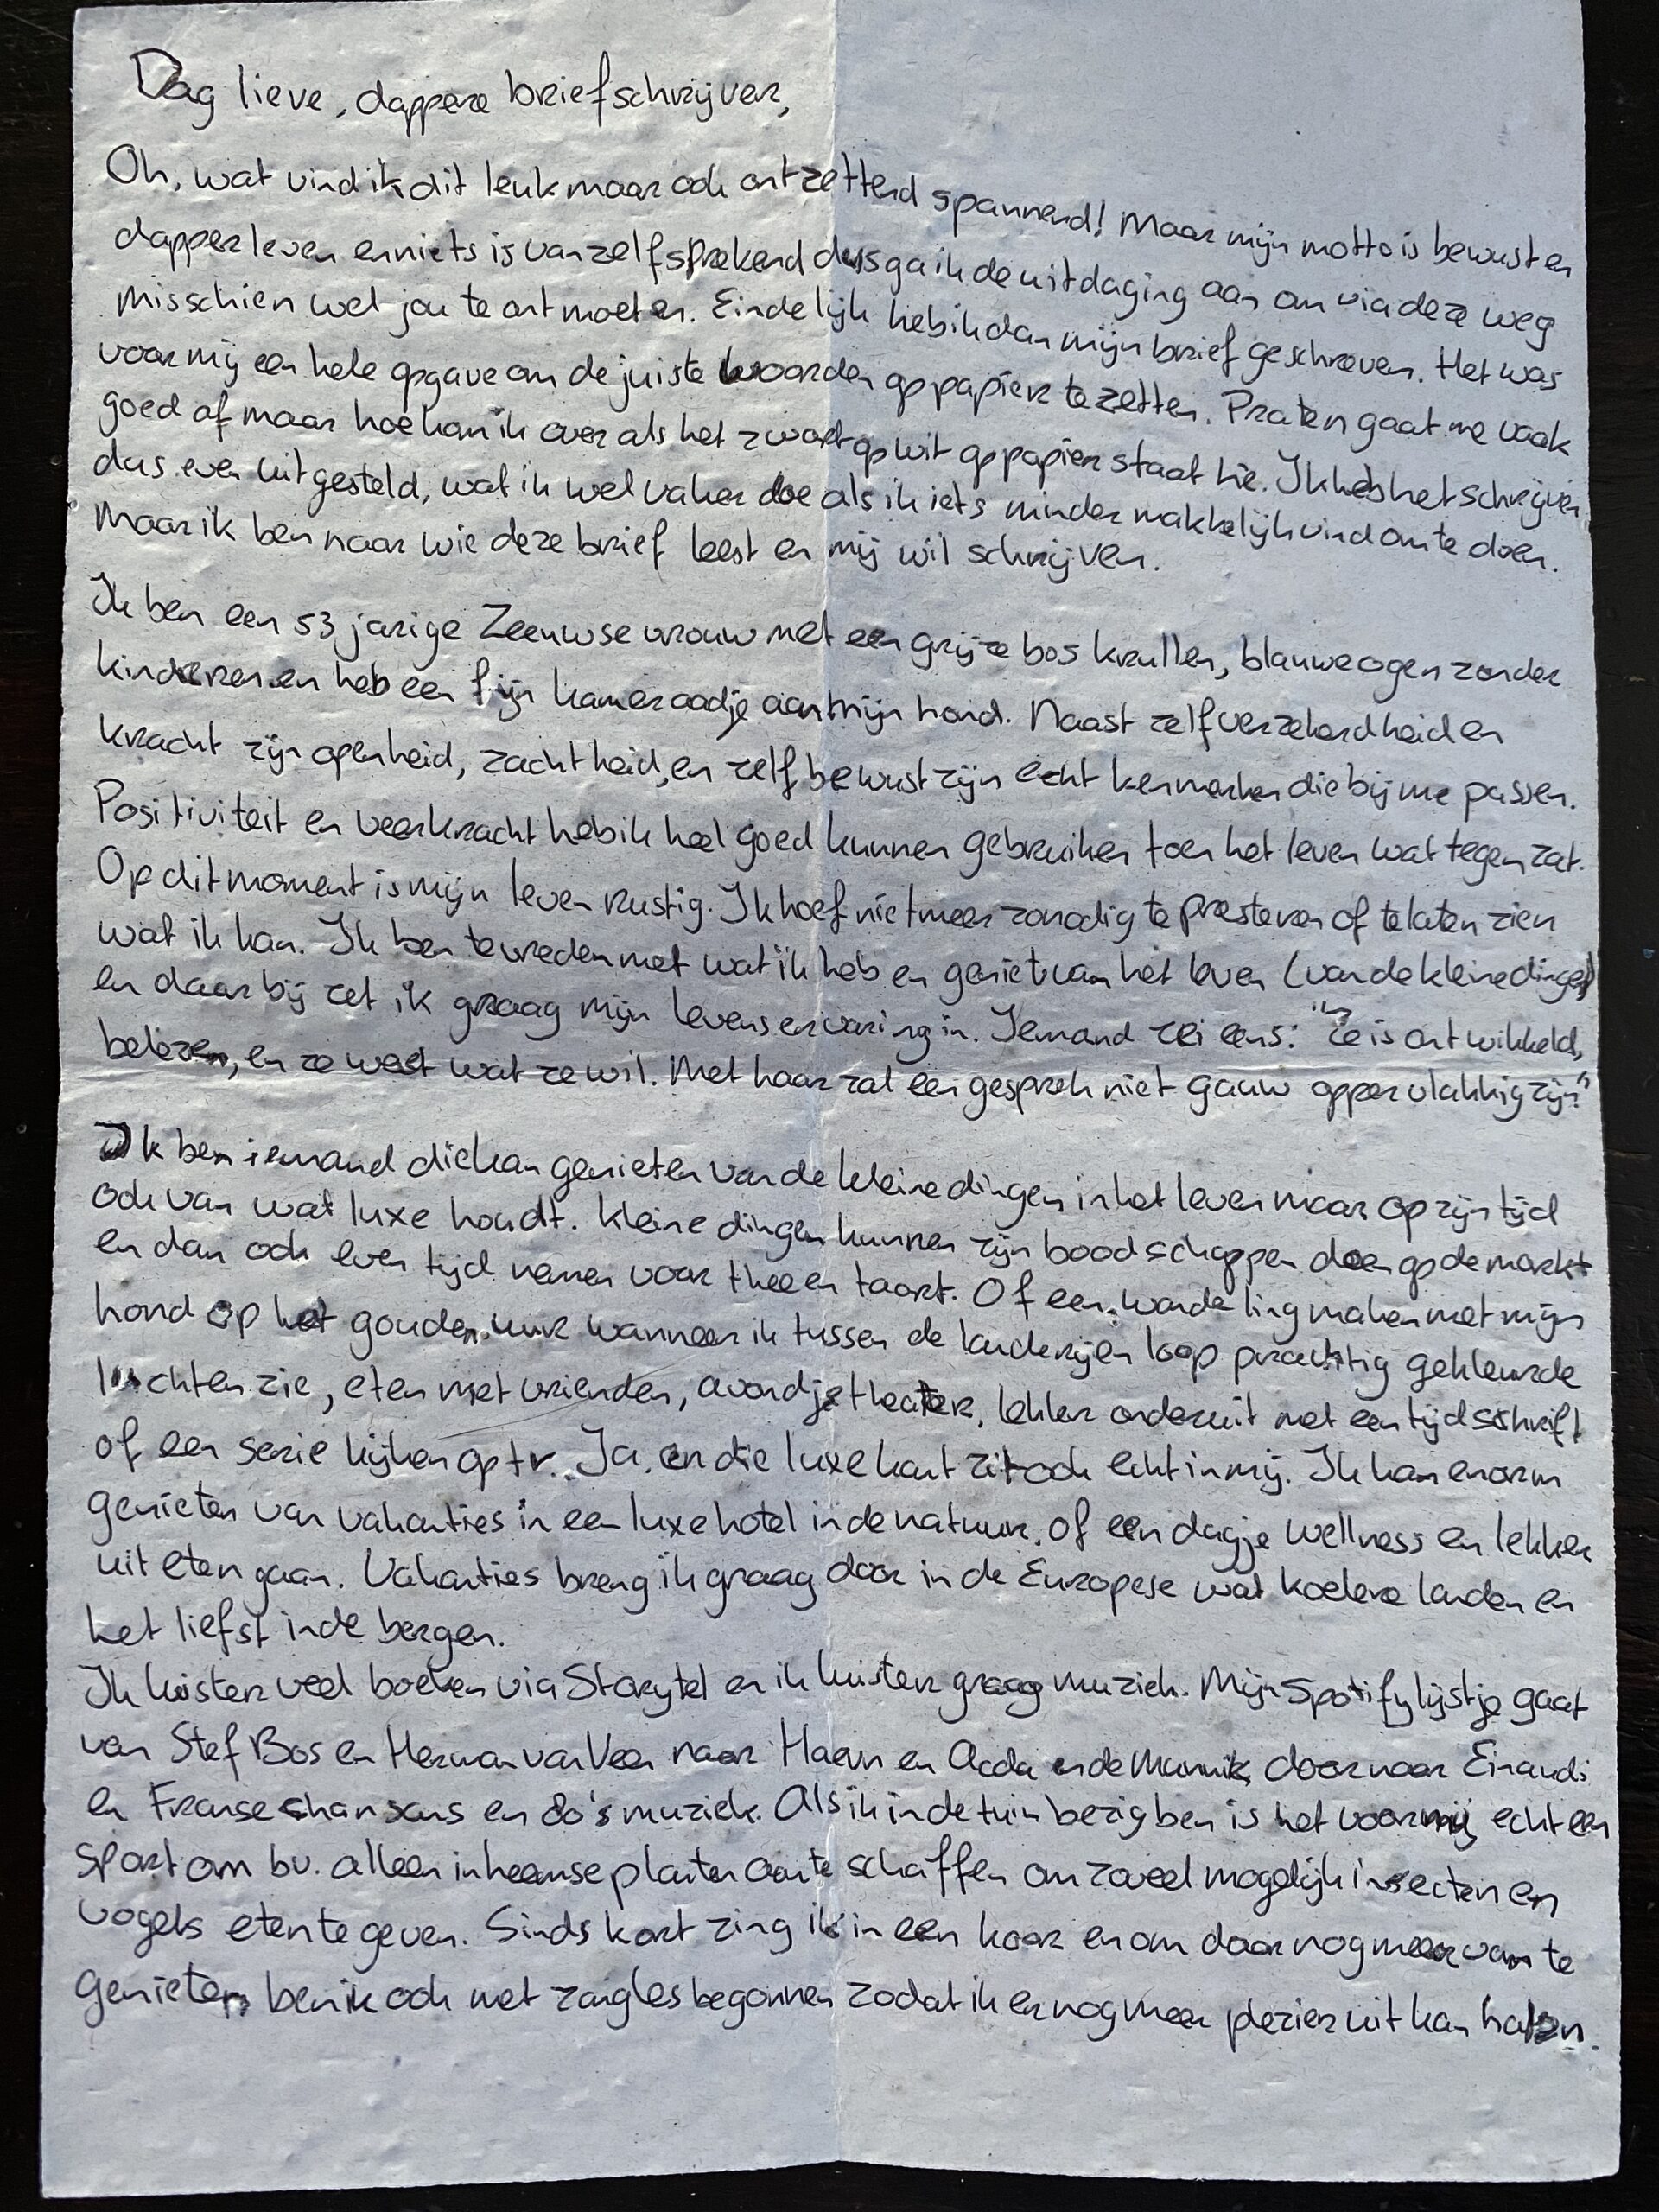 Dag lieve, dappere briefschrijver,
Oh, wat vind ik dit leuk maar ook ontzettend spannend! Maar mijn motto is bewust en
dapper leven en niets is vanzelfsprekend dus ga ik de uitdaging aan om via deze weg
misschien wel jou te ontmoeten. Eindelijk heb ik dan mijn brief geschreven. Het was
voor mij een hele opgave om de juiste woorden op papier te zetten. Praten gaat me vaak
goed af maar hoe kom ik over als het zwart op wit op papier staat hè. Ik heb het schrijven
dus even uitgesteld, wat ik wel vaker doe als ik iets minder makkelijk vind om te doen.
Maar ik ben naar wie deze brief leest en mij wil schrijven.
Ik ben een 53 jarige Zeeuwse vrouw met een grijze bos krullen, blauwe ogen zonder
kinderen en heb een fijn kameraadje aan mijn hond. Naast zelfverzekerdheid en
kracht zijn openheid, zachtheid, en zelfbewustzijn echt kenmerken die bij me passen.
Positiviteit en veerkracht heb ik heel goed kunnen gebruiken toen het leven wat tegen zat.
Op dit moment is mijn leven rustig. Ik hoef niet meer zonodig te presteren of te laten zien
wat ik kan. Ik ben tevreden met wat ik heb en geniet van het leven (van de kleine dingen)
en daarbij zet ik graag mijn levenservaring in. Iemand zei eens: "ze is ontwikkeld,
belezen, en ze weet wat ze wil. Met haar zal een gesprek niet gauw oppervlakkig zijn."
Ik ben iemand die kan genieten van de kleine dingen in het leven maar op zijn tijd
ook van wat luxe houdt. Kleine dingen kunnen zijn boodschappen doen op de markt
en dan ook even tijd nemen voor thee en taart. Of een wandeling maken met mijn
hond op het gouden uur wanneer ik tussen de landerijen loop prachtig gekleurde
luchten zie, eten met vrienden, avondje theater, lekker onderuit met een tijdschrift
of een serie kijken op tv. Ja, en die luxe kant zit ook echt in mij. Ik kan enorm
genieten van vakanties in een luxe hotel in de natuur. of een dagje wellness en lekker
uit eten gaan. Vakanties breng ik graag door in de Europese wat koelere landen en
het liefst in de bergen.
Ik luister veel boeken via Storytel en ik luister graag muziek. Mijn Spotify lijstje gaat
van Stef Bos en Herman van Veen naar Haevn en Acda en de Munnik door naar Einaudi
en Franse chansons en 80's muziek. Als ik in de tuin bezig ben is het voor mij echt een
sport om bv. alleen inheemse planten aan te schaffen om zoveel mogelijk insecten en
vogels eten te geven. Sinds kort zing ik in een koor en om daar nog meer van te
genieten ben ik ook met zangles begonnen zodat ik er nog meer plezier uit kan halen.